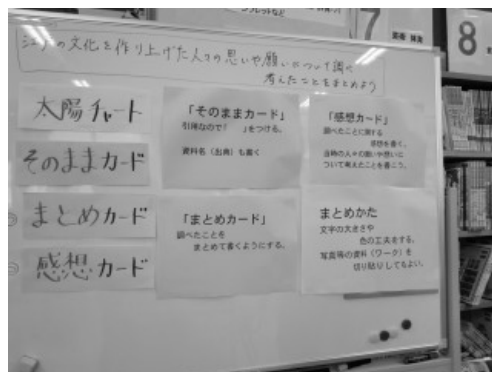 江戸の文化を作り上げた人々の思いや願いについて調べ
考えたことをまとめよう
太陽チャート
そのままカード
まとめカード
感想カード
「そのままカード」
引用なので「　　」をつける。
資料名（出典）も書く
「感想カード」
調べたことに関する
感想を書く。
当時の人々の願いや想いに
ついて考えたことを書こう。
「まとめカード」
調べたことを
まとめて書くようにする。
まとめかた
文字の大きさや
色の工夫をする。
写真等の資料（ワーク）を
切り貼りしてもよい。
7
8